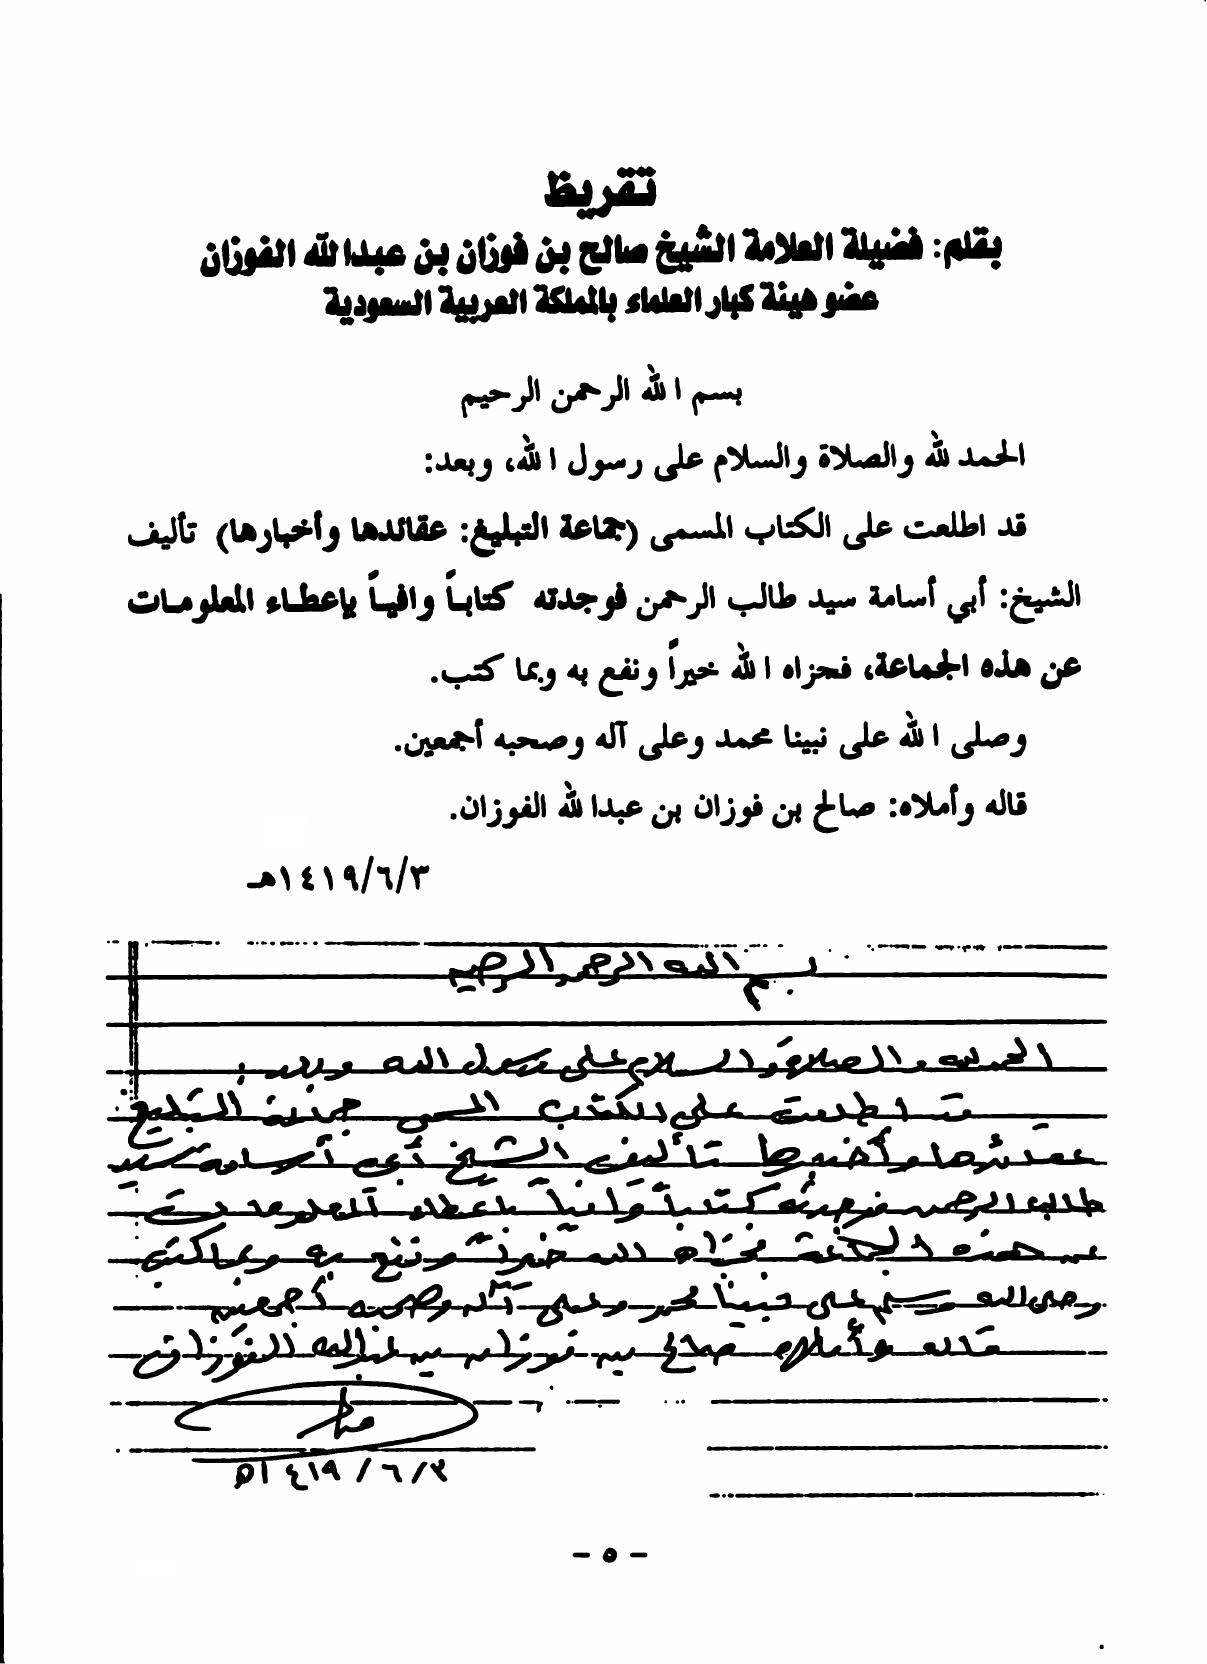 تقريظ
بقلم: فضيلة العلامة الشيخ صالح بن فوزان بن عبدالله الفوزان
عضو هيئة كبار العلماء بالمملكة العربية السعودية
بسم الله الرحمن الرحيم
الحمد لله والصلاة والسلام على رسول الله، وبعد:
قد اطلعت على الكتاب المسمى (جماعة التبليغ: عقائدها وأخبارها) تأليف
الشيخ: أبي أسامة سيد طالب الرحمن فوجدته كتاباً وافياً بإعطاء المعلومات
عن هذه الجماعة، فجزاه الله خيراً ونفع به وبما كتب.
وصلى الله على نبينا محمد وعلى آله وصحبه أجمعين.
قاله وأملاه: صالح بن فوزان بن عبدالله الفوزان.
١٤١٩/٦/٣هـ
بسم الله الرحمن الرحيم
الحمد لله والصلاة والسلام على رسول الله وبعد:
قد اطلعت على الكتاب المسمى جماعة التبليغ
عقائدها وأخبارها تأليف الشيخ أبي أسامة سيد
طالب الرحمن فوجدته كتاباً وافياً بإعطاء المعلومات
عن هذه الجماعة فجزاه الله خيراً ونفع به وبما كتب
وصلى الله وسلم على نبينا محمد وعلى آله وصحبه أجمعين
قاله وأملاه صالح بن فوزان بن عبدالله الفوزان
١٤١٩/٦/٣هـ
- ٥ -